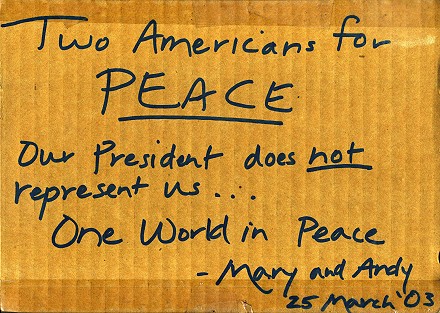 Two Americans for
PEACE
Our President does not
represent us...
One World in Peace
- Mary and Andy
25 March '03